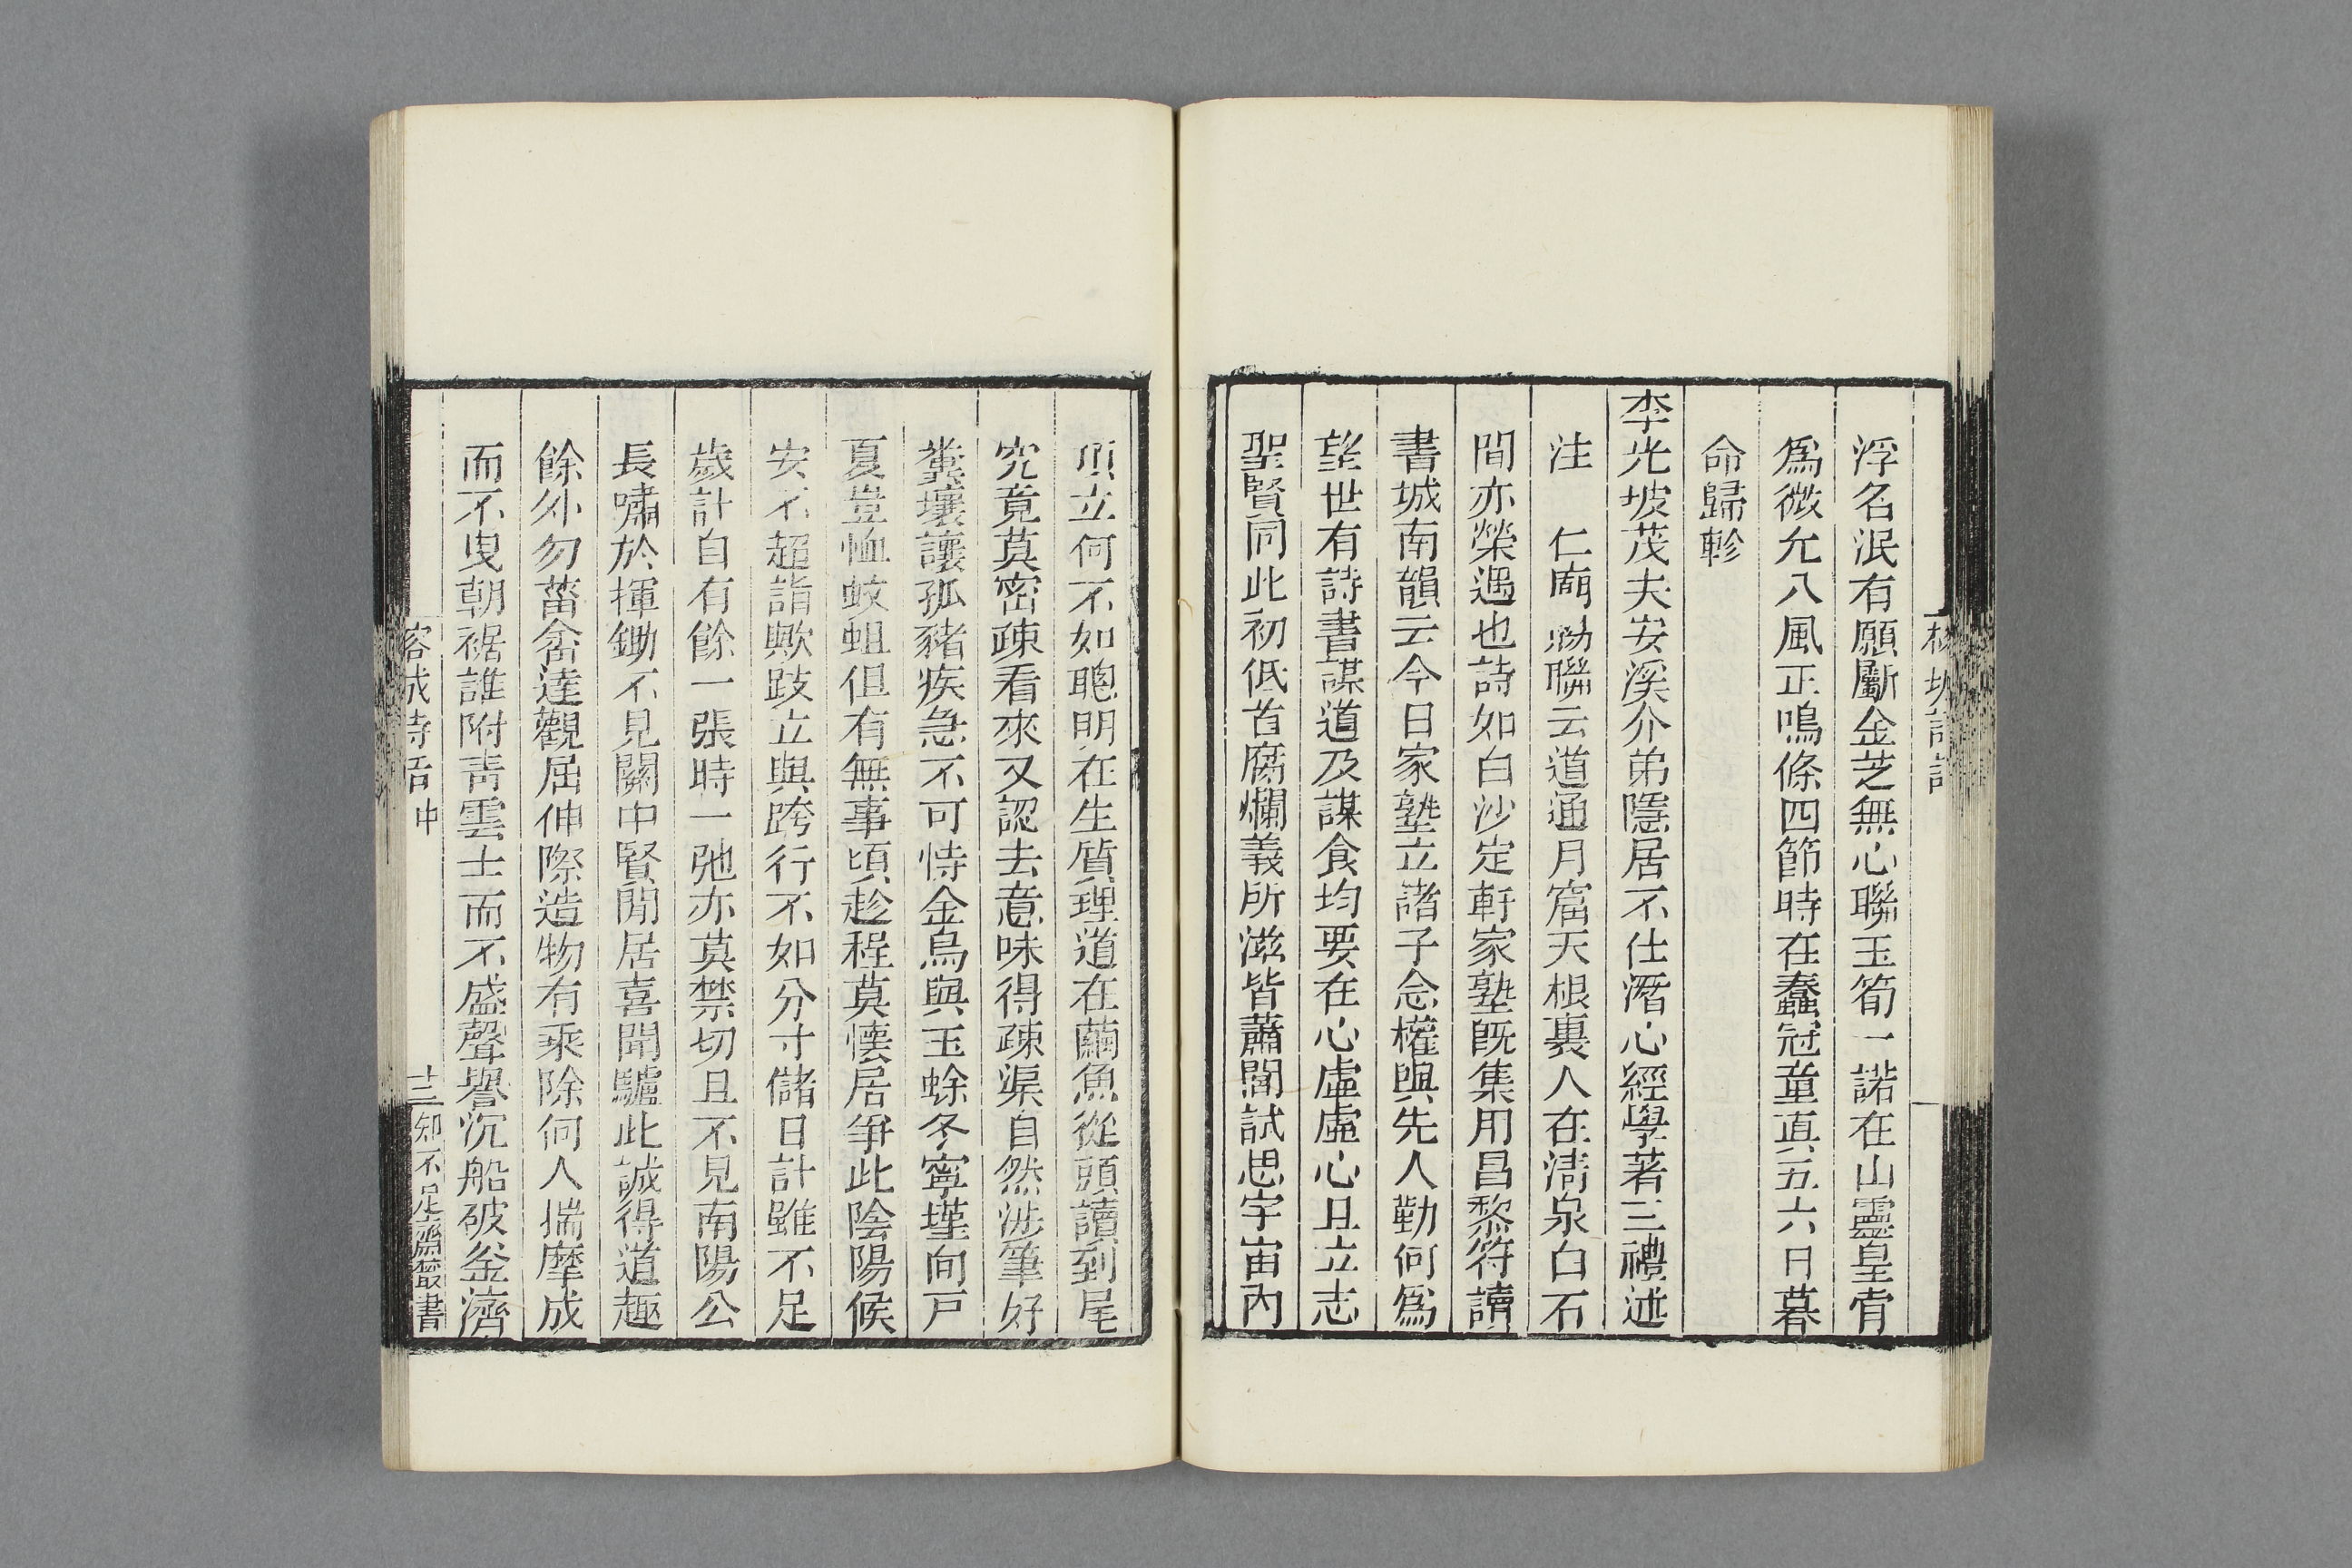 浮名泯有願屬金芝無心聯玉筍一諾在山靈皇肯
爲微允八風正鳴條四節時在蠢冠童直五六日暮
命歸軫
李光坡茂夫安溪介弟隱居不仕潛心經學著三禮述
注　仁廟勑聯云道通月窟天根裏人在淸泉白石
間亦榮遇也詩如白沙定軒家塾旣集用昌黎符讀
書城南韻云今日家塾立諸子念權輿先人勤何爲
望世有詩書謀道及謀食均要在心虛虛心且立志
聖賢同此初低首腐爛義所滋皆蕭閭試思宇宙內
頂立何不如聰明在生質理道在繭魚從頭讀到尾
究竟莫密疎看來又認去意味得疎渠自然涉筆好
糞壤讓孤豬疾急不可恃金烏與玉蜍冬寧墐向戸
夏豈恤蚊蛆但有無事頃趁程莫懐居爭此陰陽候
安不超詣歟跂立與跨行不如分寸儲日計雖不足
歲計自有餘一張時一弛亦莫禁切且不見南陽公
長嘯於揮鋤不見關中賢閒居喜聞驢此誠得道趣
餘外勿菑畬達觀屈伸際造物有乘除何人揣摩成
而不曳朝裾誰附靑雲士而不盛聲譽沉船破釜濟
知不足齋叢書